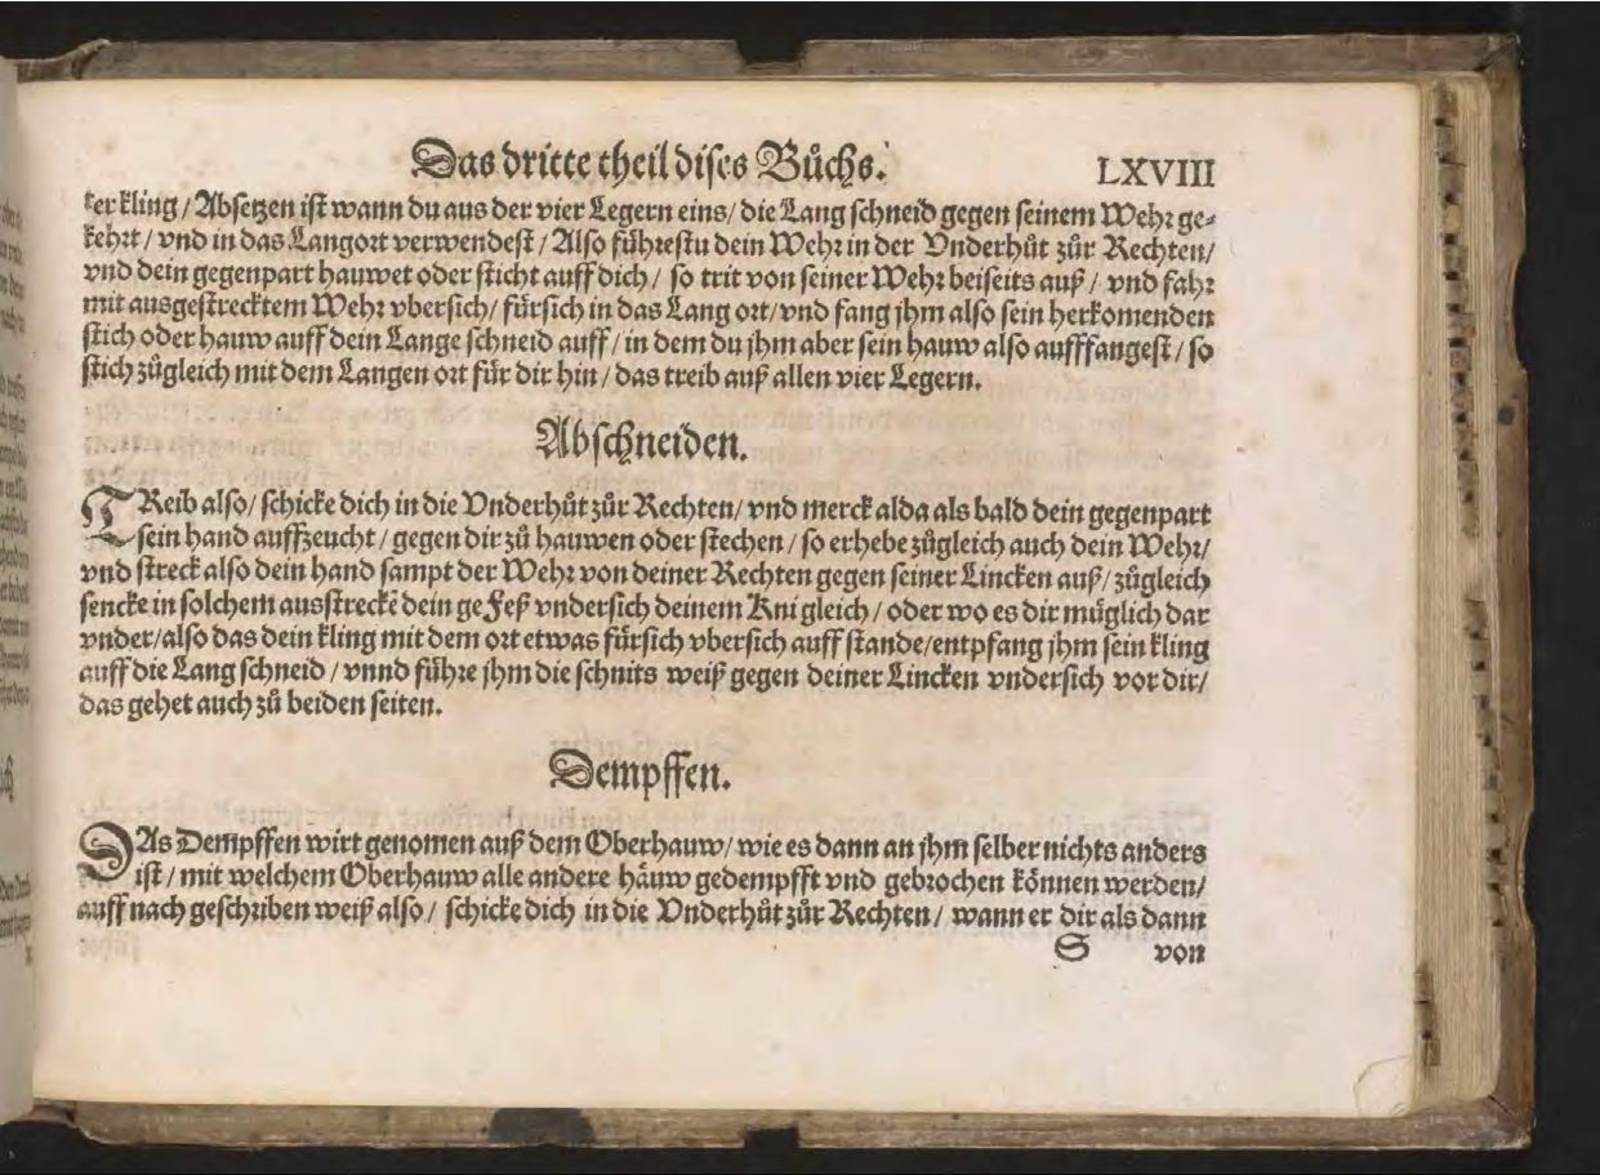 Das dritte theil dises Bůchs. LXVIII
ter kling / Absetzen ist wann du aus der vier Legern eins / die Lang schneid gegen seinem Wehr ge⸗
kehrt / vnd in das Langort verwendest / Also führestu dein Wehr in der Vnderhůt zůr Rechten /
vnd dein gegenpart hauwet oder sticht auff dich / so trit von seiner Wehr beiseits auß / vnd fahr
mit ausgestrecktem Wehr vbersich / fürsich in das Lang ort / vnd fang jhm also sein herkomenden
stich oder hauw auff dein Lange schneid auff / in dem du jhm aber sein hauw also aufffangest / so
stich zůgleich mit dem Langen ort für dir hin / das treib auß allen vier Legern.
Abschneiden.
TReib also / schicke dich in die Vnderhůt zůr Rechten / vnd merck alda als bald dein gegenpart
sein hand auffzeucht / gegen dir zů hauwen oder stechen / so erhebe zůgleich auch dein Wehr /
vnd streck also dein hand sampt der Wehr von deiner Rechten gegen seiner Lincken auß / zůgleich
sencke in solchem ausstreckē dein gefeß vndersich deinem Kni gleich / oder wo es dir müglich dar
vnder / also das dein kling mit dem ort etwas fürsich vbersich auff stande / entpfang jhm sein kling
auff die Lang schneid / vnnd führe jhm die schnits weiß gegen deiner Lincken vndersich vor dir /
das gehet auch zů beiden seiten.
Dempffen.
DAs Dempffen wirt genomen auß dem Oberhauw / wie es dann an jhm selber nichts anders
ist / mit welchem Oberhauw alle andere häuw gedempfft vnd gebrochen können werden /
auff nach geschriben weiß also / schicke dich in die Vnderhůt zůr Rechten / wann er dir als dann
S von